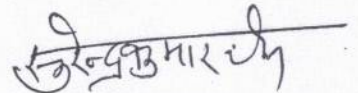 सुरेन्द्रकुमार जैन